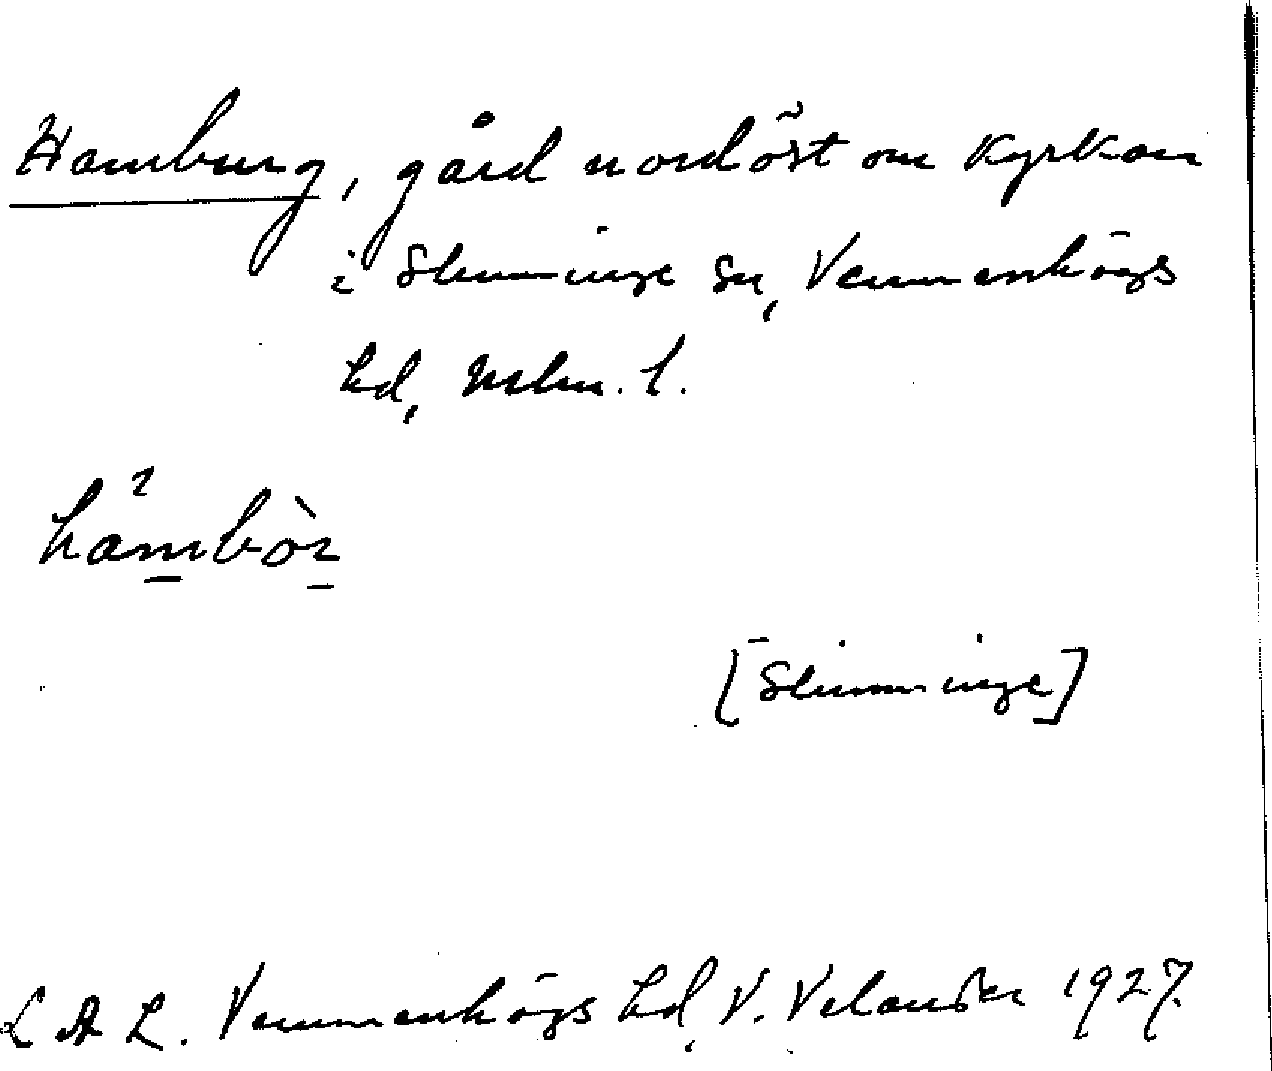 Hamburg, gård nordöst om kyrkan
i Slimminge sn, Vemmenhögs
hd, Mlm. l.
hámbòr
[Slimminge]
L A L. Vemmenhögs hd, V. Velander 1927.